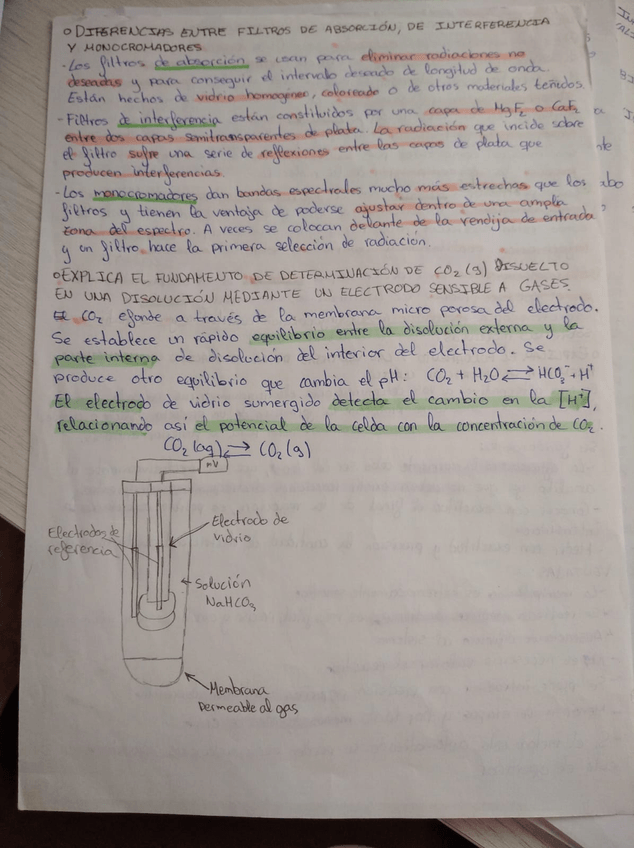 ○ DIFERENCIAS ENTRE FILTROS DE ABSORCIÓN, DE INTERFERENCIA
Y MONOCROMADORES
- Los filtros de absorción se usan para eliminar radiaciones no
deseadas y para conseguir el intervalo deseado de longitud de onda.
Están hechos de vidrio homogéneo, coloreado o de otros materiales teñidos.
- Filtros de interferencia están constituidos por una capa de MgF₂ o CaF₂
entre dos capas semitransparentes de plata. La radiación que incide sobre
el filtro sufre una serie de reflexiones entre las capas de plata que
producen interferencias.
- Los monocromadores dan bandas espectrales mucho más estrechas que los
filtros y tienen la ventaja de poderse ajustar dentro de una amplia
zona del espectro. A veces se colocan delante de la rendija de entrada
y un filtro hace la primera selección de radiación.
○ EXPLICA EL FUNDAMENTO DE DETERMINACIÓN DE CO₂ (g) DISUELTO
EN UNA DISOLUCIÓN MEDIANTE UN ELECTRODO SENSIBLE A GASES.
El CO₂ efonde a través de la membrana micro porosa del electrodo.
Se establece un rápido equilibrio entre la disolución externa y la
parte interna de disolución del interior del electrodo. Se
produce otro equilibrio que cambia el pH: CO₂ + H₂O ⇌ HCO₃⁻ + H⁺
El electrodo de vidrio sumergido detecta el cambio en la [H⁺],
relacionando así el potencial de la celda con la concentración de CO₂.
CO₂ (aq) ⇌ CO₂ (g)
mV
Electrodos de
referencia
Electrodo de
vidrio
Solución
NaHCO₃
Membrana
permeable al gas